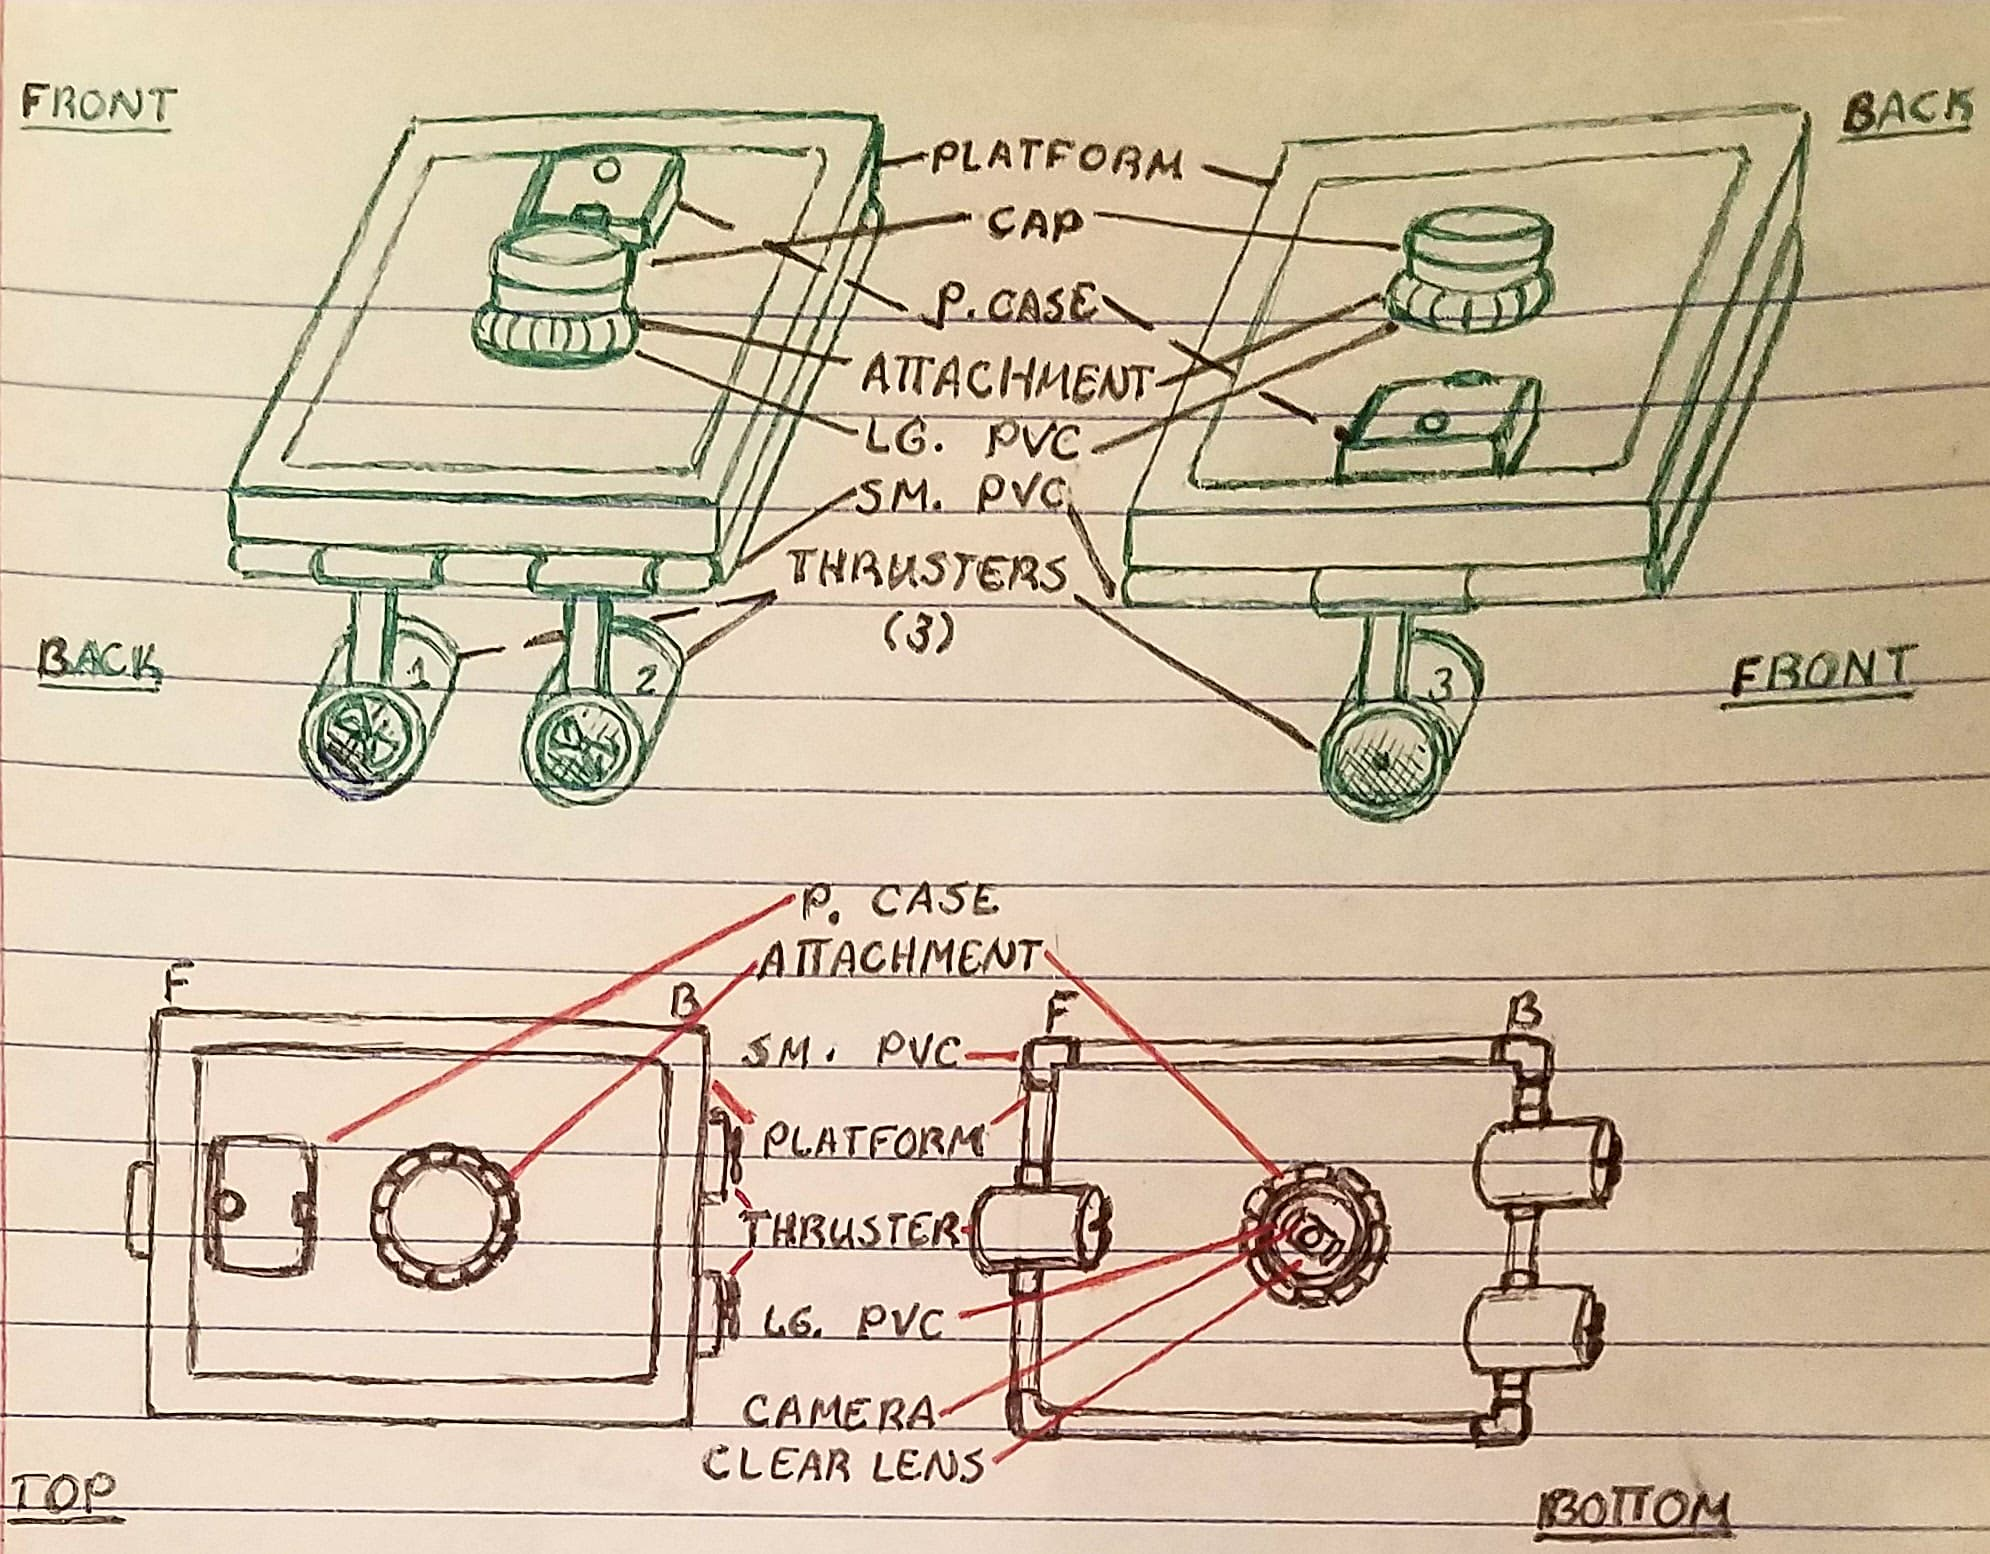 FRONT
BACK
PLATFORM
CAP
P. CASE
ATTACHMENT
LG. PVC
SM. PVC
THRUSTERS
(3)
BACK
FRONT
1
2
3
P. CASE
ATTACHMENT
F
B
F
B
SM. PVC
PLATFORM
THRUSTER
LG. PVC
CAMERA
CLEAR LENS
TOP
BOTTOM